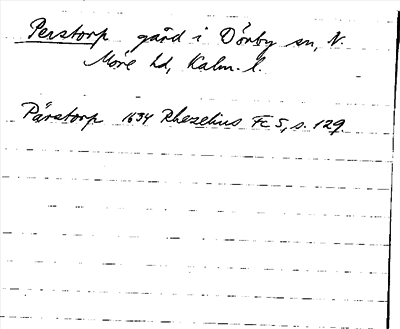 Perstorp gård i Dörby sn, N.
Möre hd, Kalm. l.
Pärstorp 1634 Rhezelius Fc 5, s. 129.